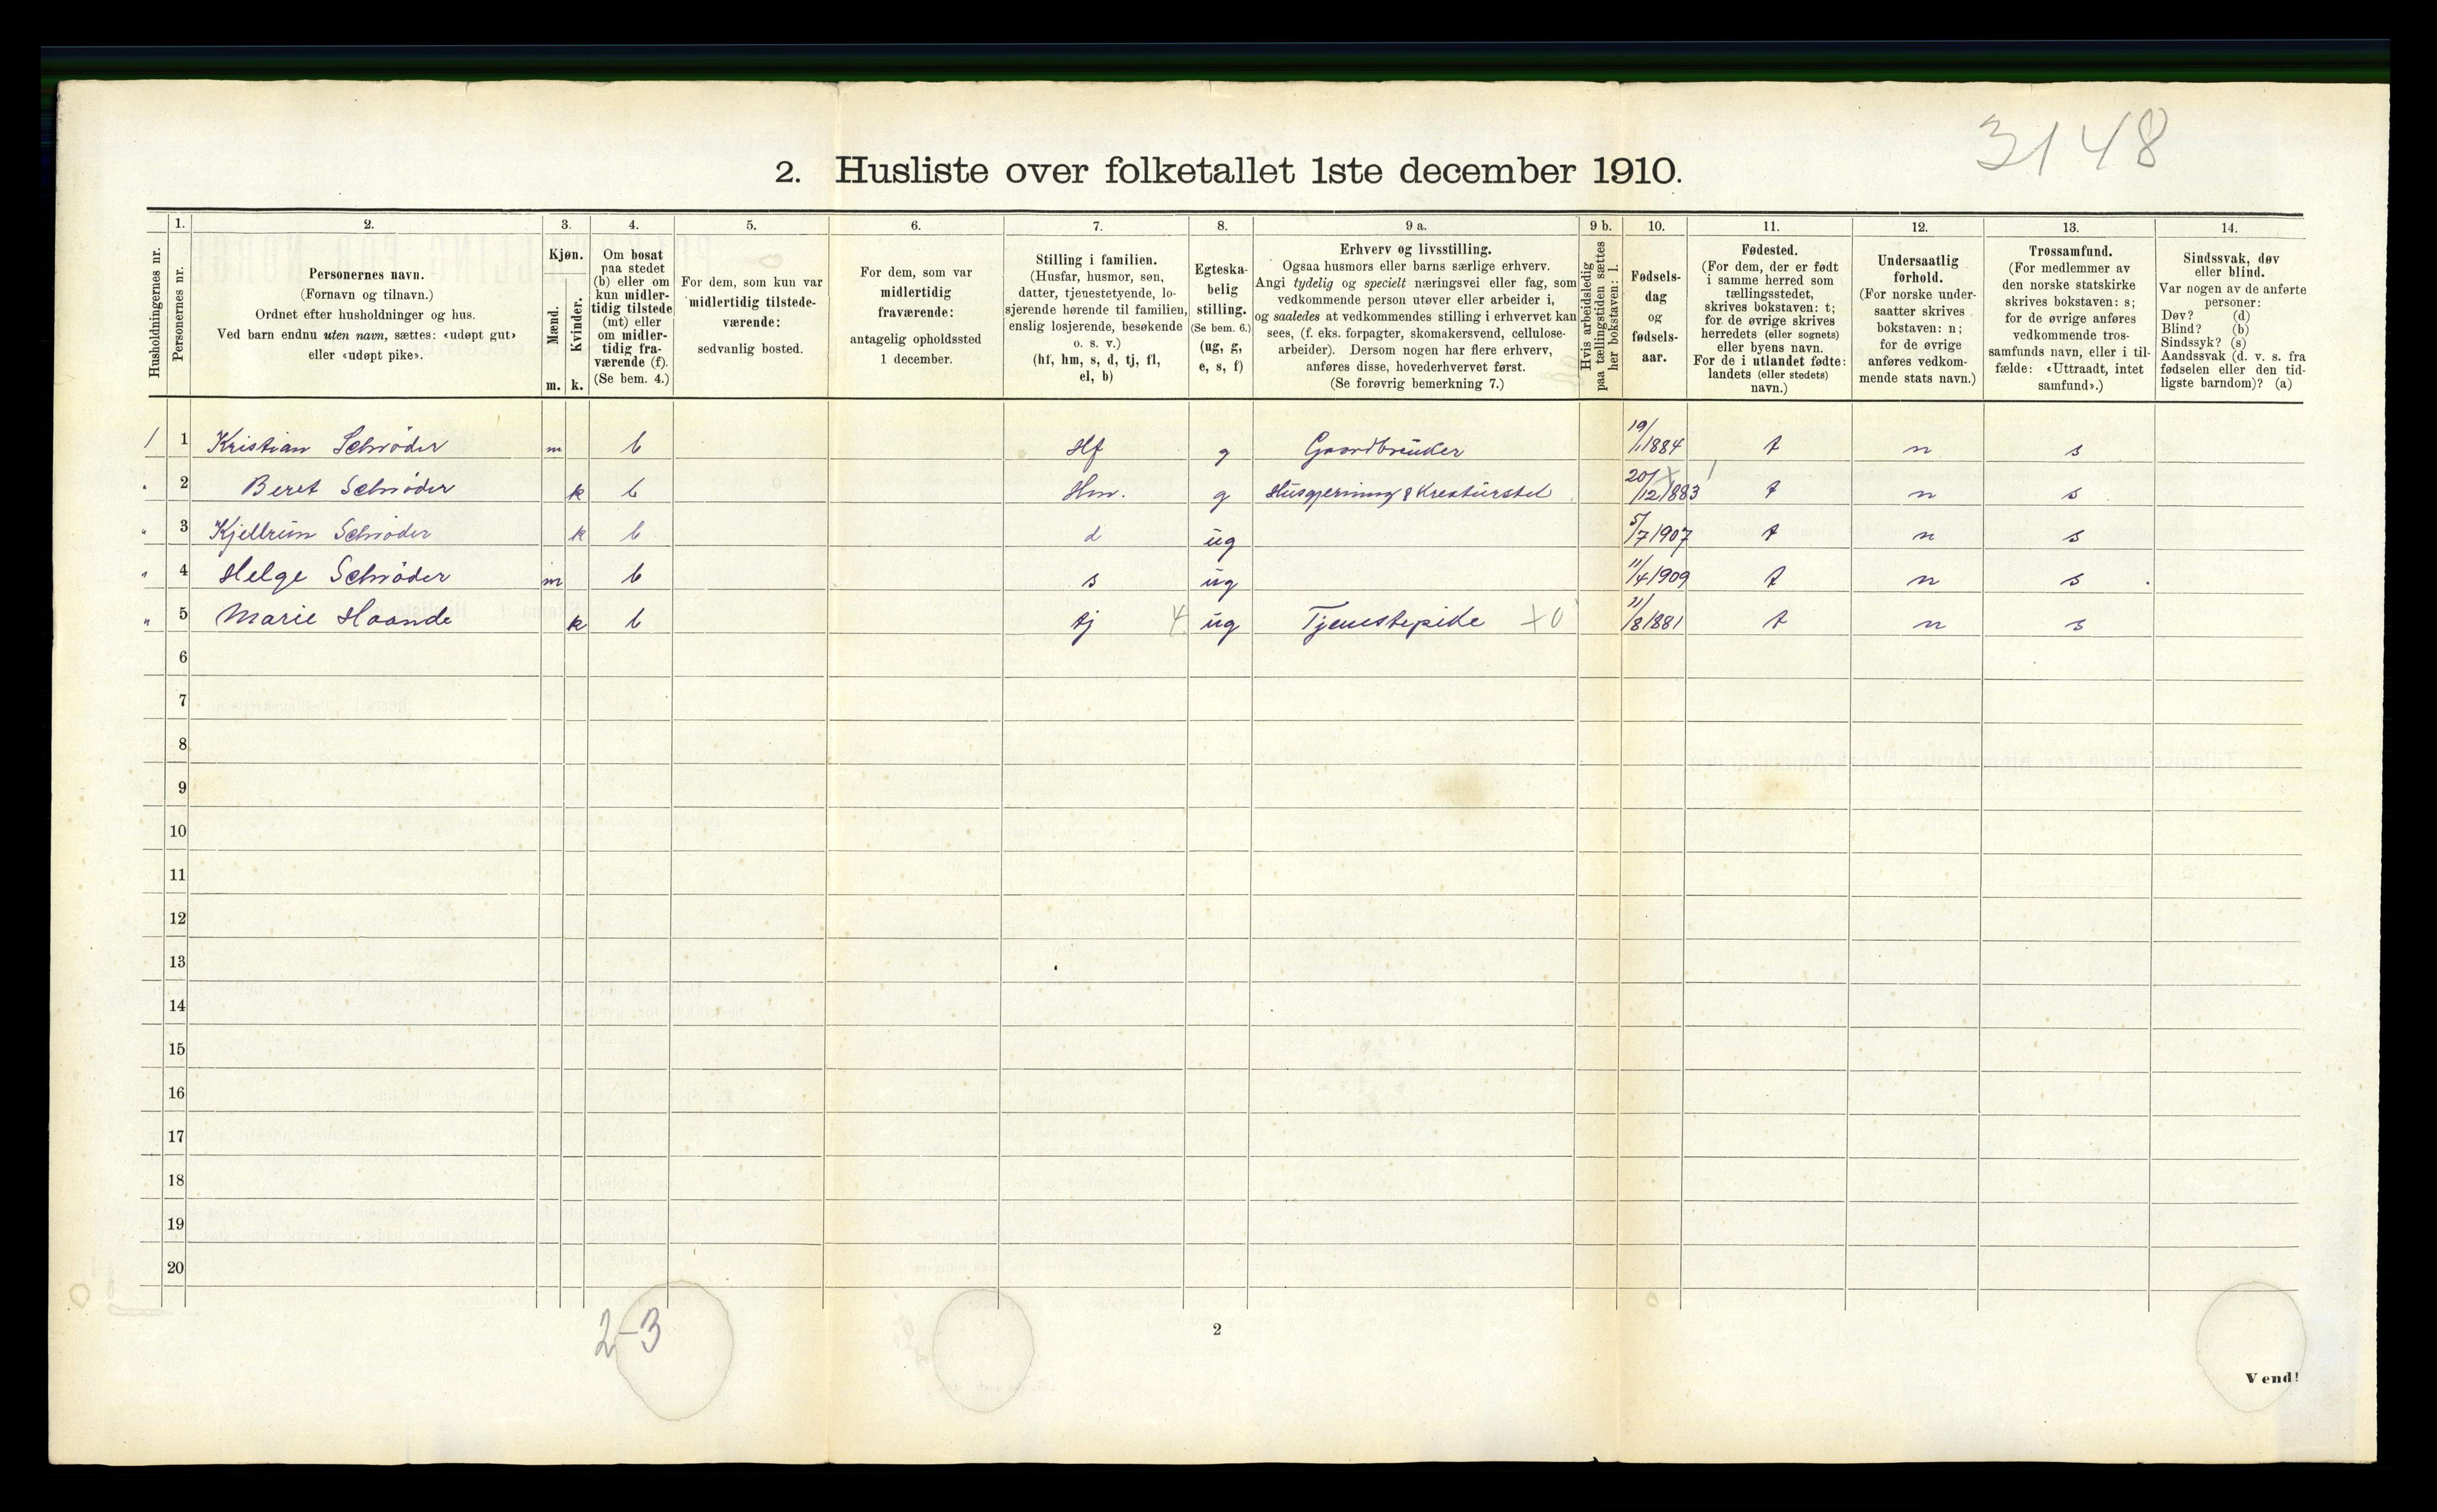 3148
2. Husliste over folketallet 1ste december 1910.
Husholdningernes nr.
1.
Personernes nr.
2.
Personernes navn.
(Fornavn og tilnavn.)
Ordnet efter husholdninger og hus.
Ved barn endnu uten navn, sættes: «udøpt gut»
eller «udøpt pike».
3.
Kjøn.
Mænd.
m.
Kvinder.
k.
4.
Om bosat
paa stedet
(b) eller om
kun midler-
tidig tilstede
(mt) eller
om midler-
tidig fra-
værende (f).
(Se bem. 4.)
5.
For dem, som kun var
midlertidig tilstede-
værende:
sedvanlig bosted.
6.
For dem, som var
midlertidig
fraværende:
antagelig opholdssted
1 december.
7.
Stilling i familien.
(Husfar, husmor, søn,
datter, tjenestetyende, lo-
sjerende hørende til familien,
enslig losjerende, besøkende
o. s. v.)
(hf, hm, s, d, tj, fl,
el, b)
8.
Egteska-
belig
stilling.
(Se bem. 6.)
(ug, g,
e, s, f)
9 a.
Erhverv og livsstilling.
Ogsaa husmors eller barns særlige erhverv.
Angi tydelig og specielt næringsvei eller fag, som
vedkommende person utøver eller arbeider i,
og saaledes at vedkommendes stilling i erhvervet kan
sees, (f. eks. forpagter, skomakersvend, cellulose-
arbeider). Dersom nogen har flere erhverv,
anføres disse, hovederhvervet først.
(Se forøvrig bemerkning 7.)
9 b.
Hvis arbeidsledig
paa tællingstiden sættes
her bokstaven: l.
10.
Fødsels-
dag
og
fødsels-
aar.
11.
Fødested.
(For dem, der er født
i samme herred som
tællingsstedet,
skrives bokstaven: t;
for de øvrige skrives
herredets (eller sognets)
eller byens navn.
For de i utlandet fødte:
landets (eller stedets)
navn.)
12.
Undersaatlig
forhold.
(For norske under-
saatter skrives
bokstaven: n;
for de øvrige
anføres vedkom-
mende stats navn.)
13.
Trossamfund.
(For medlemmer av
den norske statskirke
skrives bokstaven: s;
for de øvrige anføres
vedkommende tros-
samfunds navn, eller i til-
fælde: «Uttraadt, intet
samfund».)
14.
Sindssvak, døv
eller blind.
Var nogen av de anførte
personer:
Døv? (d)
Blind? (b)
Sindssyk? (s)
Aandssvak (d. v. s. fra
fødselen eller den tid-
ligste barndom)? (a)
1 1 Kristian Schrøder m b Hf g Gaardbruker 19/1 1884 t n s
" 2 Beret Schrøder k b Hm. g Husgjerning & Kreaturstel 20/12 1883 t n s
" 3 Kjellrun Schrøder k b d ug 5/7 1907 t n s
" 4 Helge Schrøder m b s ug 11/4 1909 t n s
" 5 Marie Haande k b tj 4 ug Tjenestepike X0 11/8 1881 t n s
6
7
8
9
10
11
12
13
14
15
16
17
18
19
20
2-3
2
Vend!